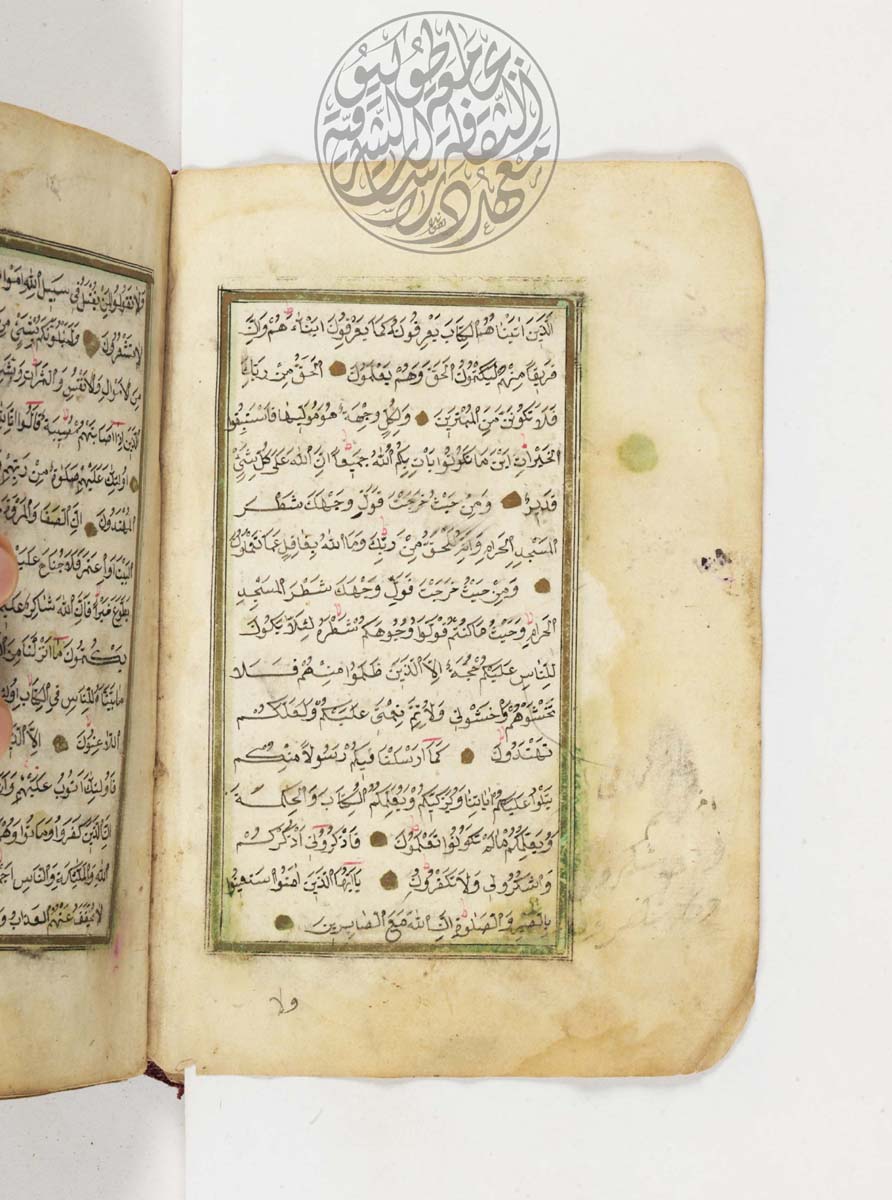 الَّذِينَ اٰتَيْنَاهُمُ الْكِتَابَ يَعْرِفُونَهُ كَمَا يَعْرِفُونَ اَبْنَاءَهُمْ وَاِنَّ
فَرِيقًا مِنْهُمْ لَيَكْتُمُونَ الْحَقَّ وَهُمْ يَعْلَمُونَ الْحَقُّ مِنْ رَبِّكَ
فَلَا تَكُونَنَّ مِنَ الْمُمْتَرِينَ وَلِكُلٍّ وِجْهَةٌ هُوَ مُوَلِّيهَا فَاسْتَبِقُوا
الْخَيْرَاتِ اَيْنَ مَا تَكُونُوا يَاْتِ بِكُمُ اللّٰهُ جَمِيعًا اِنَّ اللّٰهَ عَلٰى كُلِّ شَيْءٍ
قَدِيرٌ وَمِنْ حَيْثُ خَرَجْتَ فَوَلِّ وَجْهَكَ شَطْرَ
الْمَسْجِدِ الْحَرَامِ وَاِنَّهُ لَلْحَقُّ مِنْ رَبِّكَ وَمَا اللّٰهُ بِغَافِلٍ عَمَّا تَعْمَلُونَ
وَمِنْ حَيْثُ خَرَجْتَ فَوَلِّ وَجْهَكَ شَطْرَ الْمَسْجِدِ
الْحَرَامِ وَحَيْثُ مَا كُنْتُمْ فَوَلُّوا وُجُوهَكُمْ شَطْرَهُ لِئَلَّا يَكُونَ
لِلنَّاسِ عَلَيْكُمْ حُجَّةٌ اِلَّا الَّذِينَ ظَلَمُوا مِنْهُمْ فَلَا
تَخْشَوْهُمْ وَاخْشَوْنِي وَلِاُتِمَّ نِعْمَتِي عَلَيْكُمْ وَلَعَلَّكُمْ
تَهْتَدُونَ كَمَا اَرْسَلْنَا فِيكُمْ رَسُولًا مِنْكُمْ
يَتْلُوا عَلَيْكُمْ اٰيَاتِنَا وَيُزَكِّيكُمْ وَيُعَلِّمُكُمُ الْكِتَابَ وَالْحِكْمَةَ
وَيُعَلِّمُكُمْ مَا لَمْ تَكُونُوا تَعْلَمُونَ فَاذْكُرُونِي اَذْكُرْكُمْ
وَاشْكُرُولِي وَلَا تَكْفُرُونِ يَا اَيُّهَا الَّذِينَ اٰمَنُوا اسْتَعِينُوا
بِالصَّبْرِ وَالصَّلٰوةِ اِنَّ اللّٰهَ مَعَ الصَّابِرِينَ
ولا
وَلَا تَقُولُوا لِمَنْ يُقْتَلُ فِي سَبِيلِ اللّٰهِ اَمْوَا
لَا تَشْعُرُونَ وَلَنَبْلُوَنَّكُمْ بِشَيْءٍ مِنَ
مِنَ الْاَمْوَالِ وَالْاَنْفُسِ وَالثَّمَرَاتِ وَبَشِّرِ
الَّذِينَ اِذَا اَصَابَتْهُمْ مُصِيبَةٌ قَالُوا اِنَّا لِلّٰهِ
اُولٰئِكَ عَلَيْهِمْ صَلَوَاتٌ مِنْ رَبِّهِمْ
الْمُهْتَدُونَ اِنَّ الصَّفَا وَالْمَرْوَةَ
الْبَيْتَ اَوِ اعْتَمَرَ فَلَا جُنَاحَ عَلَيْهِ
تَطَوَّعَ خَيْرًا فَاِنَّ اللّٰهَ شَاكِرٌ عَلِيمٌ
يَكْتُمُونَ مَا اَنْزَلْنَا مِنَ
مَا بَيَّنَّاهُ لِلنَّاسِ فِي الْكِتَابِ اُولٰئِكَ
اللَّاعِنُونَ اِلَّا الَّذِينَ
فَاُولٰئِكَ اَتُوبُ عَلَيْهِمْ وَاَنَا
اِنَّ الَّذِينَ كَفَرُوا وَمَاتُوا وَهُمْ
اللّٰهِ وَالْمَلٰئِكَةِ وَالنَّاسِ اَجْمَ
لَا يُخَفَّفُ عَنْهُمُ الْعَذَابُ وَ